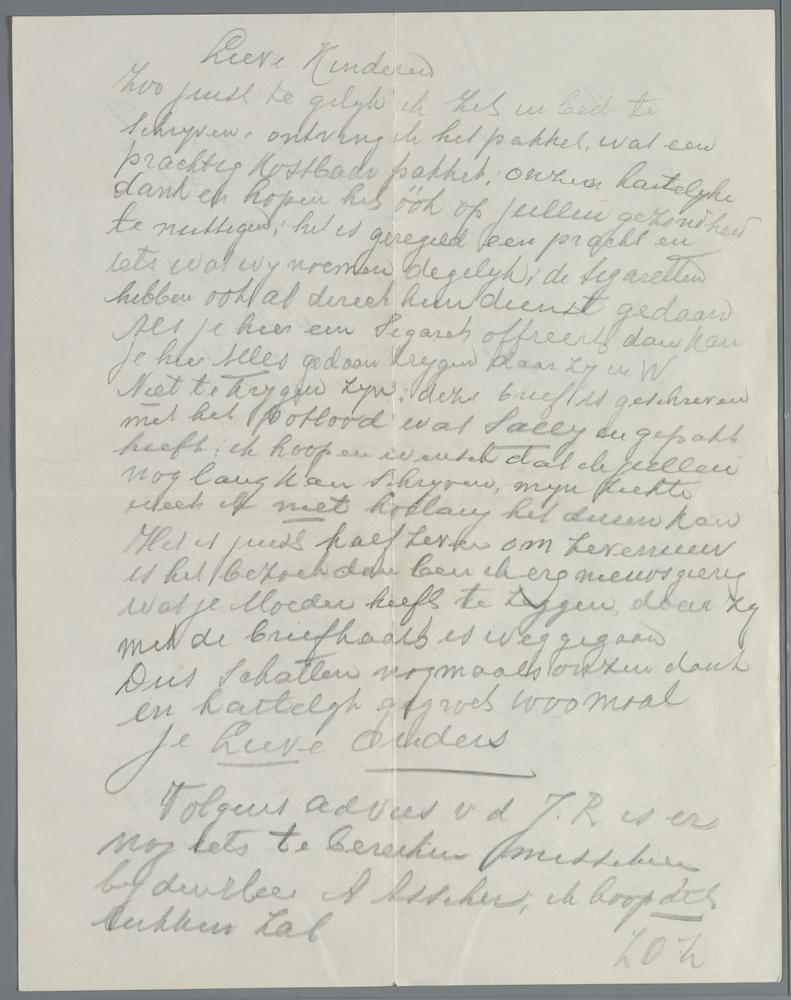 Lieve Kinderen
Zoo juist te gelijk ik zet in bed te
schrijven, ontving ik het pakket, wat een
prachtig kostbaar pakket, onzen hartelijke
dank en hopen het öök op jullie gezondheid
te nuttigen, het is geregeld een pracht en
iets wat wij noemen degelijk; de segaretten
hebben ook al direct hun dienst gedaan
Als je hier een Segaret offreert dan kan
je hier Alles gedaan krygen daar zy in W
Niet te krygen zyn; deze brief is geschreven
met het potlood wat Sally in gepakt
heeft; ik hoop en wensch dat ik jullie
nog lang kan schryven, myn ziekte
weet ik niet hoelang het duren kan
Het is juist half zeven om zeven uur
is het bezoek dan ben ik erg nieuwsgierig
wat je Moeder heeft te zeggen, daar zy
met de briefkaart is weggegaan
Dus Schatten nogmaals onzen dank
en hartelyk gegroet woomaal
je Lieve Ouders
Volgens advies v d J.R. is er
nog iets te bereiken misschien
by den Heer A Asscher, ik hoop dat
lukken zal
ZOZ